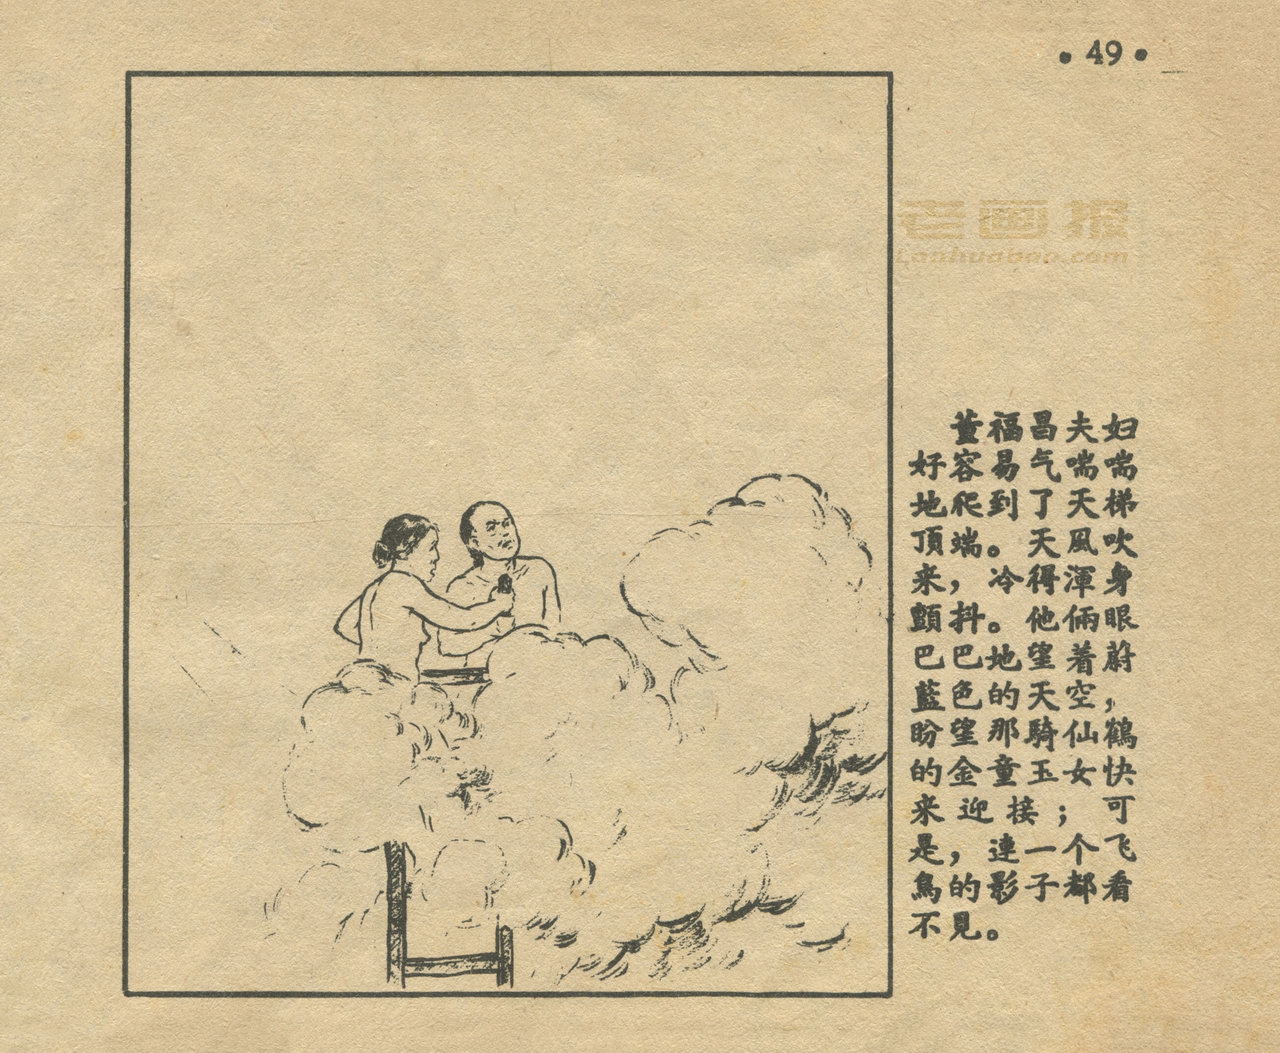 • 49 •
老画报
Laohuabao.com
董福昌夫妇
好容易气喘喘
地爬到了天梯
頂端。天風吹
来，冷得渾身
顫抖。他倆眼
巴巴地望着蔚
藍色的天空，
盼望那騎仙鶴
的金童玉女快
来迎接；可
是，連一个飞
鳥的影子都看
不見。